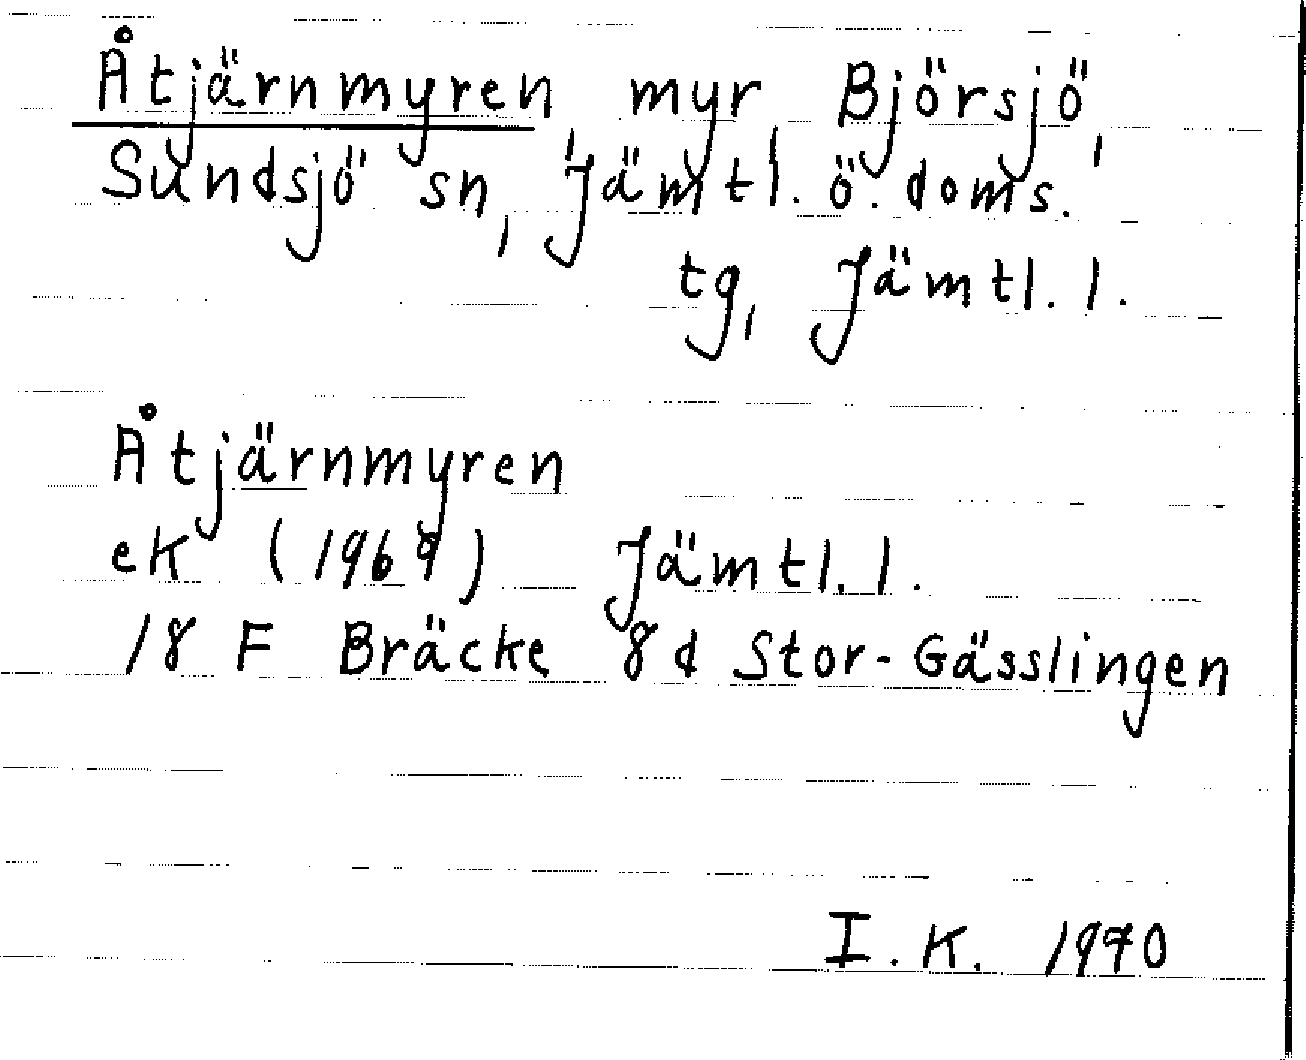 Åtjärnmyren, myr, Björsjö,
Sundsjö sn, Jämtl. ö. doms.
tg, Jämtl. l.
Åtjärnmyren
ek (1969) Jämtl. l.
18 F Bräcke 8d Stor-Gässlingen
I. K. 1970